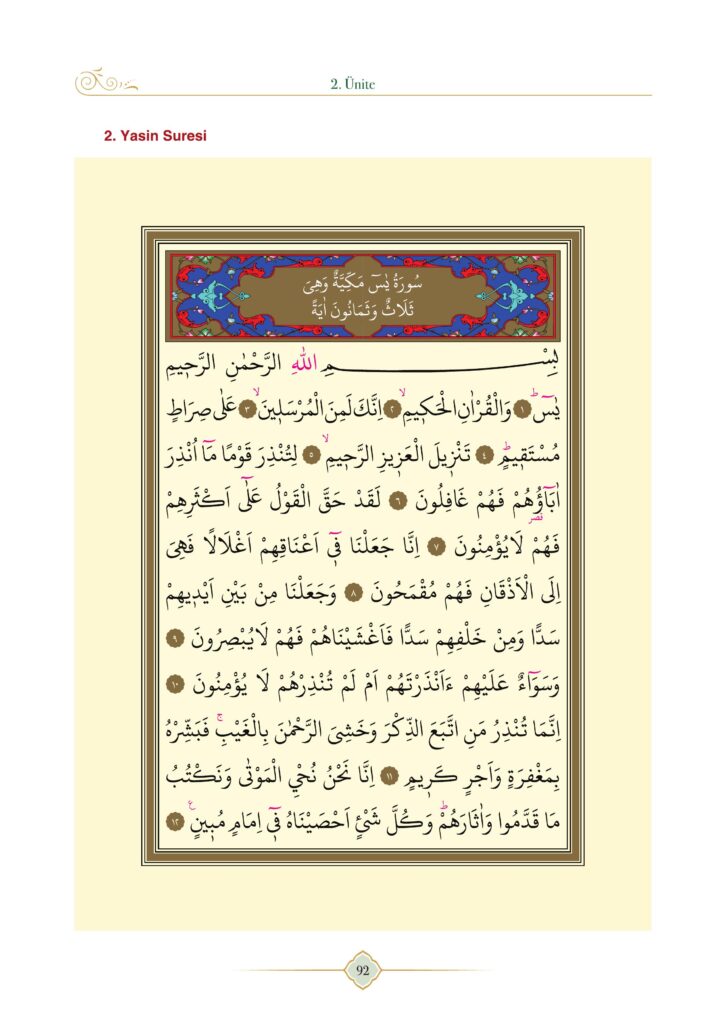 2. Ünite
2. Yasin Suresi
سُورَةُ يٰسٓ مَكِّيَّةٌ وَهِىَ
ثَلَاثٌ وَثَمَانُونَ اٰيَةً
بِسْــــــــــــــمِ اللّٰهِ الرَّحْمٰنِ الرَّح۪يمِ
يٰسٓۜ ﴿١﴾ وَالْقُرْاٰنِ الْحَك۪يمِۙ ﴿٢﴾ اِنَّكَ لَمِنَ الْمُرْسَل۪ينَۙ ﴿٣﴾ عَلٰى صِرَاطٍ
مُسْتَق۪يمٍۜ ﴿٤﴾ تَنْز۪يلَ الْعَز۪يزِ الرَّح۪يمِۙ ﴿٥﴾ لِتُنْذِرَ قَوْمًا مَٓا اُنْذِرَ
اٰبَٓاؤُ۬هُمْ فَهُمْ غَافِلُونَ ﴿٦﴾ لَقَدْ حَقَّ الْقَوْلُ عَلٰٓى اَكْثَرِهِمْ
فَهُمْ لَا يُؤْمِنُونَ ﴿٧﴾ اِنَّا جَعَلْنَا ف۪ٓي اَعْنَاقِهِمْ اَغْلَالًا فَهِىَ
اِلَى الْاَذْقَانِ فَهُمْ مُقْمَحُونَ ﴿٨﴾ وَجَعَلْنَا مِنْ بَيْنِ اَيْد۪يهِمْ
سَدًّا وَمِنْ خَلْفِهِمْ سَدًّا فَاَغْشَيْنَاهُمْ فَهُمْ لَا يُبْصِرُونَ ﴿٩﴾
وَسَوَٓاءٌ عَلَيْهِمْ ءَاَنْذَرْتَهُمْ اَمْ لَمْ تُنْذِرْهُمْ لَا يُؤْمِنُونَ ﴿١٠﴾
اِنَّمَا تُنْذِرُ مَنِ اتَّبَعَ الذِّكْرَ وَخَشِىَ الرَّحْمٰنَ بِالْغَيْبِۚ فَبَشِّرْهُ
بِمَغْفِرَةٍ وَاَجْرٍ كَر۪يمٍ ﴿١١﴾ اِنَّا نَحْنُ نُحْيِ الْمَوْتٰى وَنَكْتُبُ
مَا قَدَّمُوا وَاٰثَارَهُمْۜ وَكُلَّ شَيْءٍ اَحْصَيْنَاهُ ف۪ٓي اِمَامٍ مُب۪ينٍ۟ ﴿١٢﴾
92